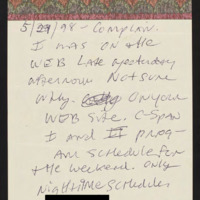 5/29/98 - Complain.
I was on the
WEB Late yesterday
afternoon Not sure
why. On your
WEB Site. C-Span
I and II prog-
ram schedule for
the weekend. only
Nighttime schedules